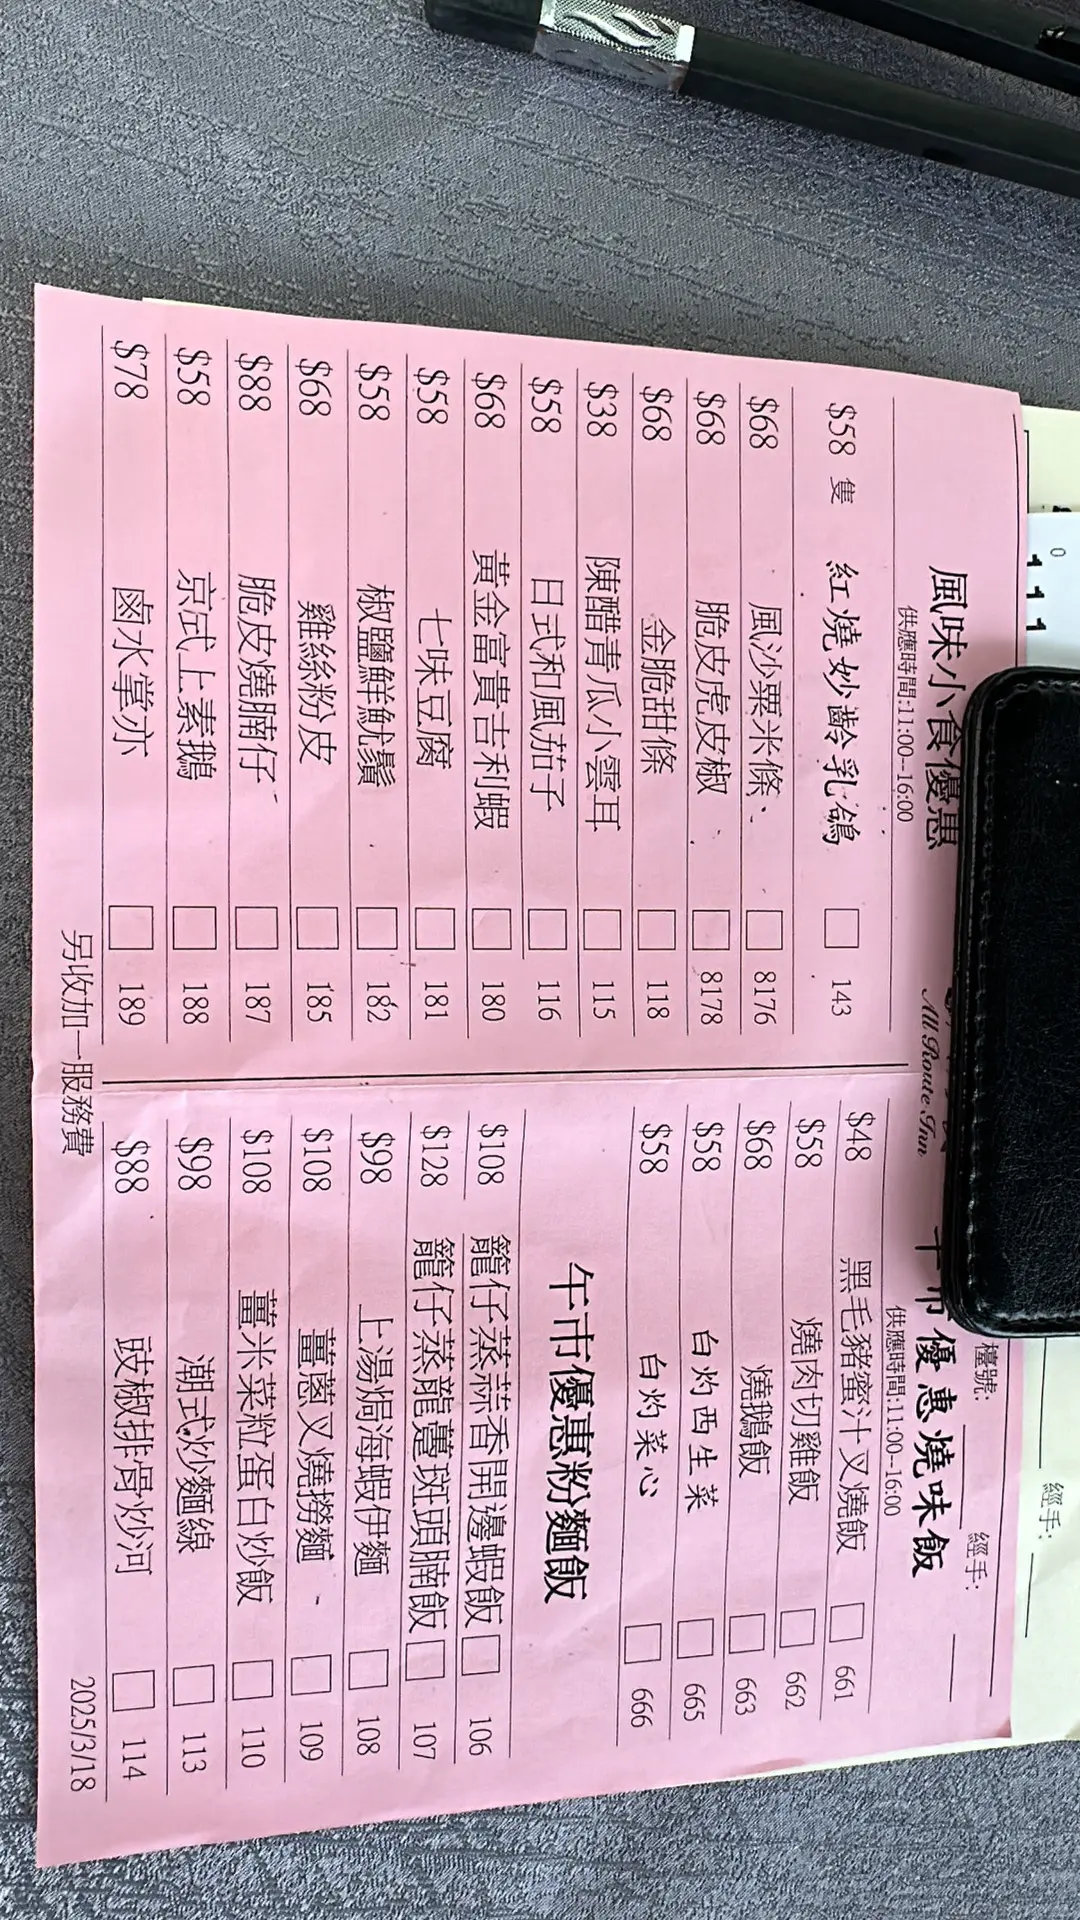 檯號:
經手:
經手:
0
111
All Route Inn
風味小食優惠
供應時間:11:00--16:00
$58 隻 紅燒妙齡乳鴿 143
$68 風沙粟米條 8176
$68 脆皮虎皮椒 8178
$68 金脆甜條 118
$38 陳醋青瓜小雲耳 115
$58 日式和風茄子 116
$68 黃金富貴吉利蝦 180
$58 七味豆腐 181
$58 椒鹽鮮魷鬚 182
$68 雞絲粉皮 185
$88 脆皮燒腩仔 187
$58 京式上素鵝 188
$78 鹵水掌亦 189
市優惠燒味飯
供應時間:11:00--16:00
$48 黑毛豬蜜汁叉燒飯 661
$58 燒肉切雞飯 662
$68 燒鵝飯 663
$58 白灼西生菜 665
$58 白灼菜心 666
午市優惠粉麵飯
$108 籠仔蒸蒜香開邊蝦飯 106
$128 籠仔蒸龍躉斑頭腩飯 107
$98 上湯焗海蝦伊麵 108
$108 薑蔥叉燒撈麵 109
$108 薑米菜粒蛋白炒飯 110
$98 潮式炒麵線 113
$88 豉椒排骨炒河 114
另收加一服務費
2025/3/18